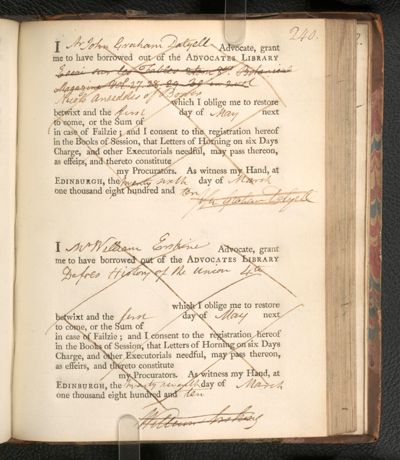 240.
I Mr John Graham Dalyell Advocate, grant
me to have borrowed out of the ADVOCATES LIBRARY
Essai sur les Fables Botanical
Magazine Vol 27. 28. 29.
Anecdotes of Books
which I oblige me to restore
betwixt and the first day of May next
to come, or the Sum of
in case of Failzie; and I consent to the registration hereof
in the Books of Session, that Letters of Horning on six Days
Charge, and other Executorials needful, may pass thereon,
as effeirs, and thereto constitute
my Procurators. As witness my Hand, at
EDINBURGH, the twenty sixth day of March
one thousand eight hundred and ten
John Graham Dalyell
I Mr William Erskine Advocate, grant
me to have borrowed out of the ADVOCATES LIBRARY
Defoes History of the Union 4to
which I oblige me to restore
betwixt and the first day of May next
to come, or the Sum of
in case of Failzie; and I consent to the registration hereof
in the Books of Session, that Letters of Horning on six Days
Charge, and other Executorials needful, may pass thereon,
as effeirs, and thereto constitute
my Procurators. As witness my Hand, at
EDINBURGH, the twenty seventh day of March
one thousand eight hundred and ten
William Erskine